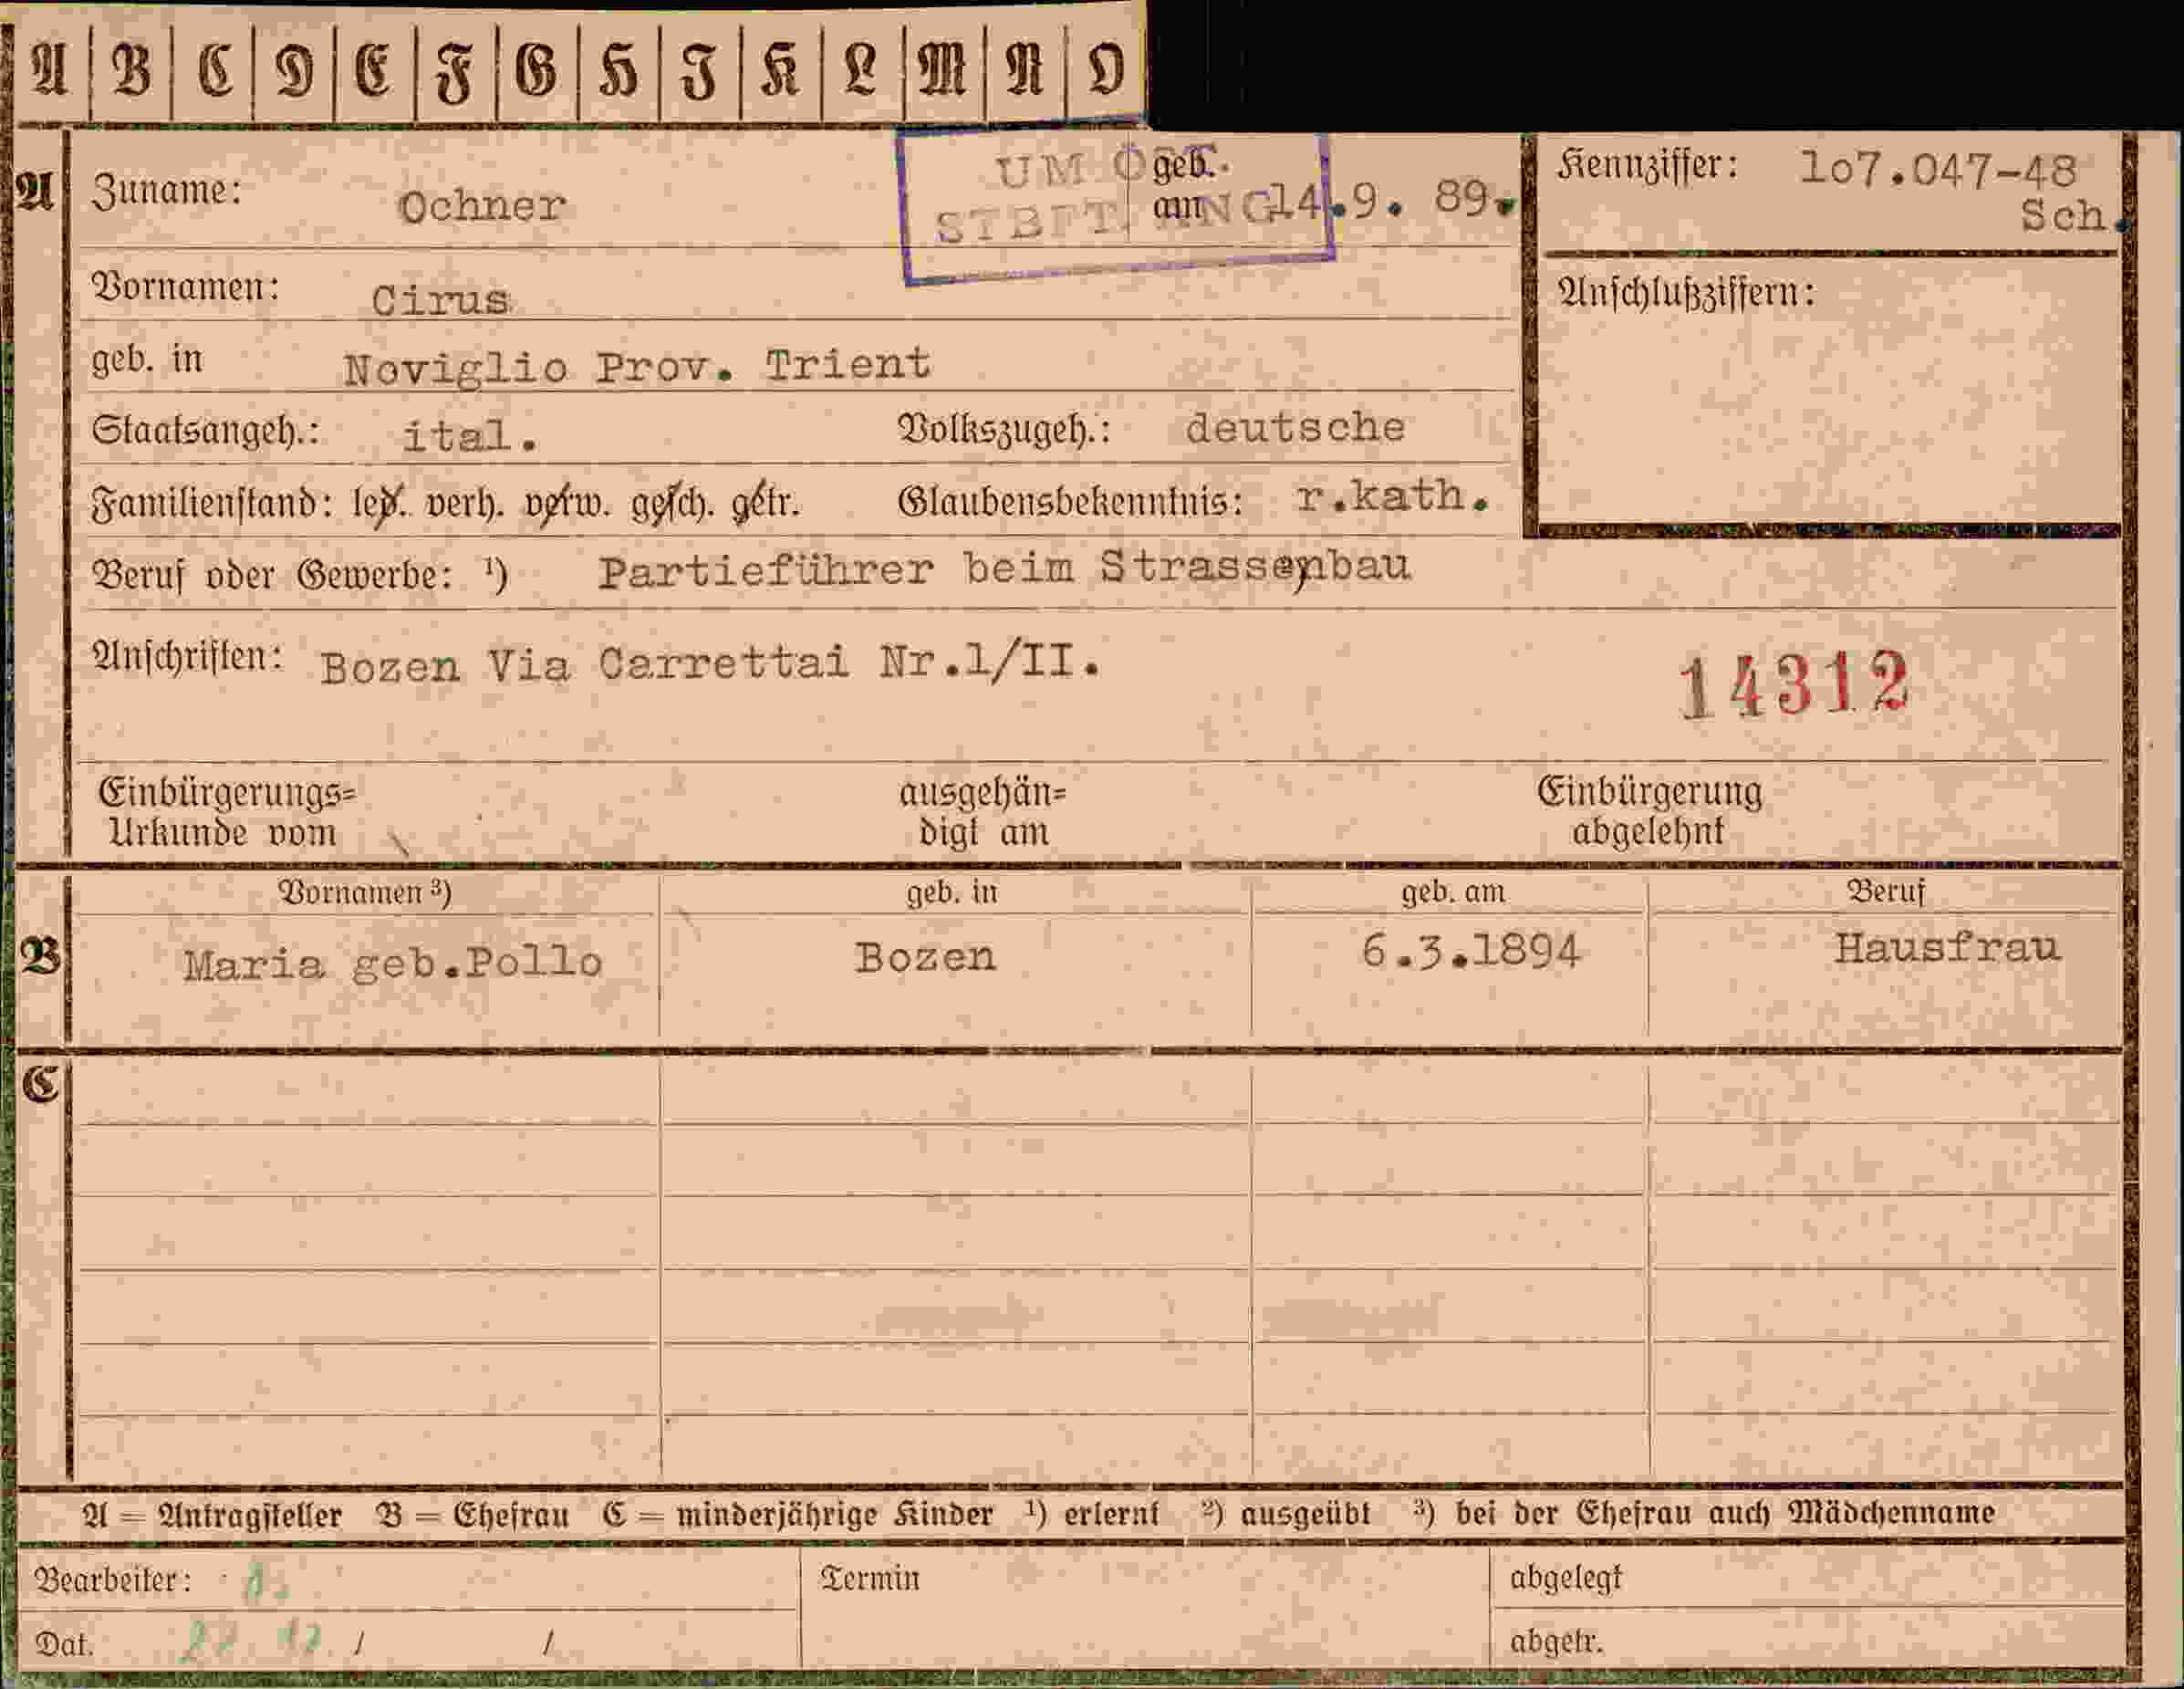 A B C D E F G H J K L M N O
A Zuname: Ochner geb. am 14.9. 89.
Kennziffer: 1o7.047-48
Sch.
Vornamen: Cirus
Anschlußziffern:
geb. in Noviglio Prov. Trient
Staatsangeh.: ital. Volkszugeh.: deutsche
Familienstand: led. verh. verw. gesch. getr. Glaubensbekenntnis: r.kath.
Beruf oder Gewerbe: ¹) Partieführer beim Strassenbau
Anschriften: Bozen Via Carrettai Nr.1/II.
14312
Einbürgerungs= ausgehän= Einbürgerung
Urkunde vom digt am abgelehnt
Vornamen ³) geb. in geb. am Beruf
B Maria geb.Pollo Bozen 6.3.1894 Hausfrau
C
A = Antragsteller B = Ehefrau C = minderjährige Kinder ¹) erlernt ²) ausgeübt ³) bei der Ehefrau auch Mädchenname
Bearbeiter: Termin abgelegt
Dat. / / abgetr.